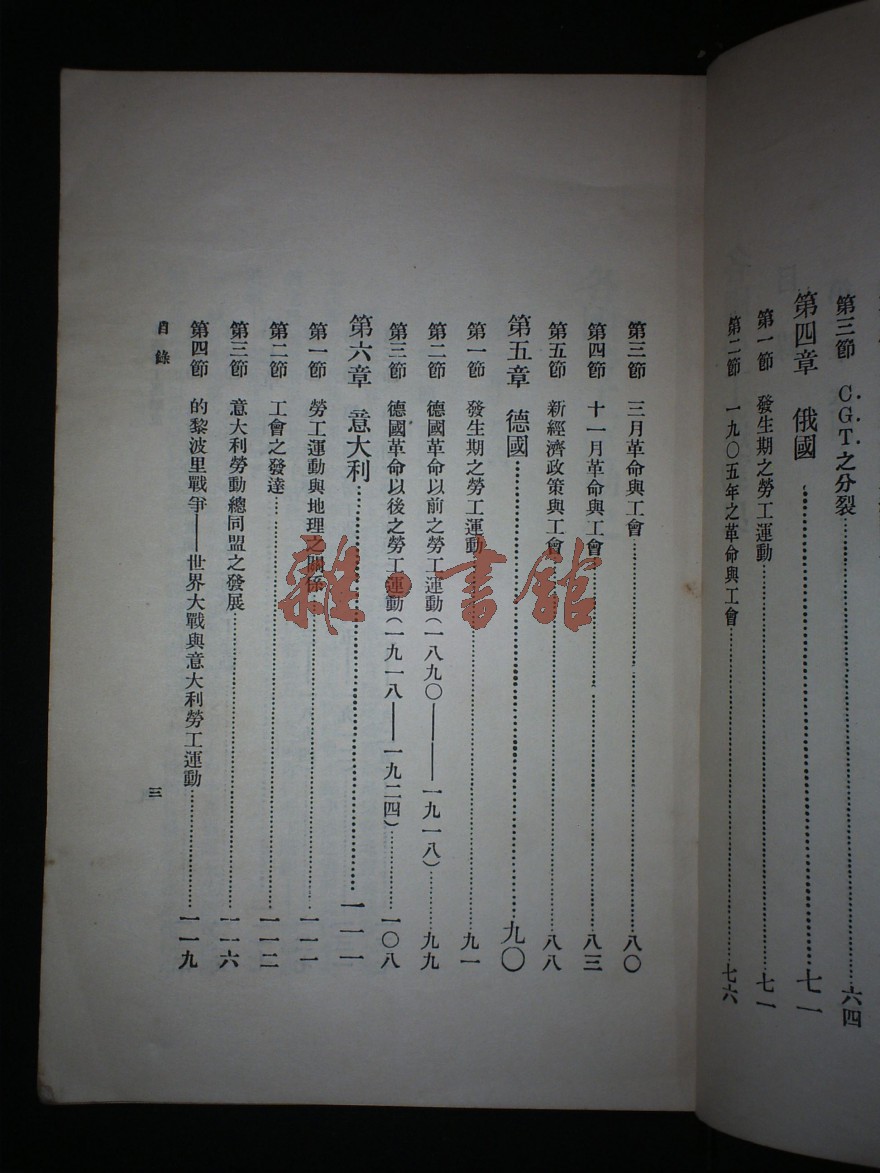 第三節 C.G.T.之分裂……六四
第四章 俄國……七一
第一節 發生期之勞工運動……七一
第二節 一九〇五年之革命與工會……七六
第三節 三月革命與工會……八〇
第四節 十一月革命與工會……八三
第五節 新經濟政策與工會……八八
第五章 德國……九〇
第一節 發生期之勞工運動……九一
第二節 德國革命以前之勞工運動(一八九〇——一九一八)……九九
第三節 德國革命以後之勞工運動(一九一八——一九二四)……一〇八
第六章 意大利……一一一
第一節 勞工運動與地理之關係……一一一
第二節 工會之發達……一一二
第三節 意大利勞動總同盟之發展……一一六
第四節 的黎波里戰爭——世界大戰與意大利勞工運動……一一九
目錄 三
雜·書館